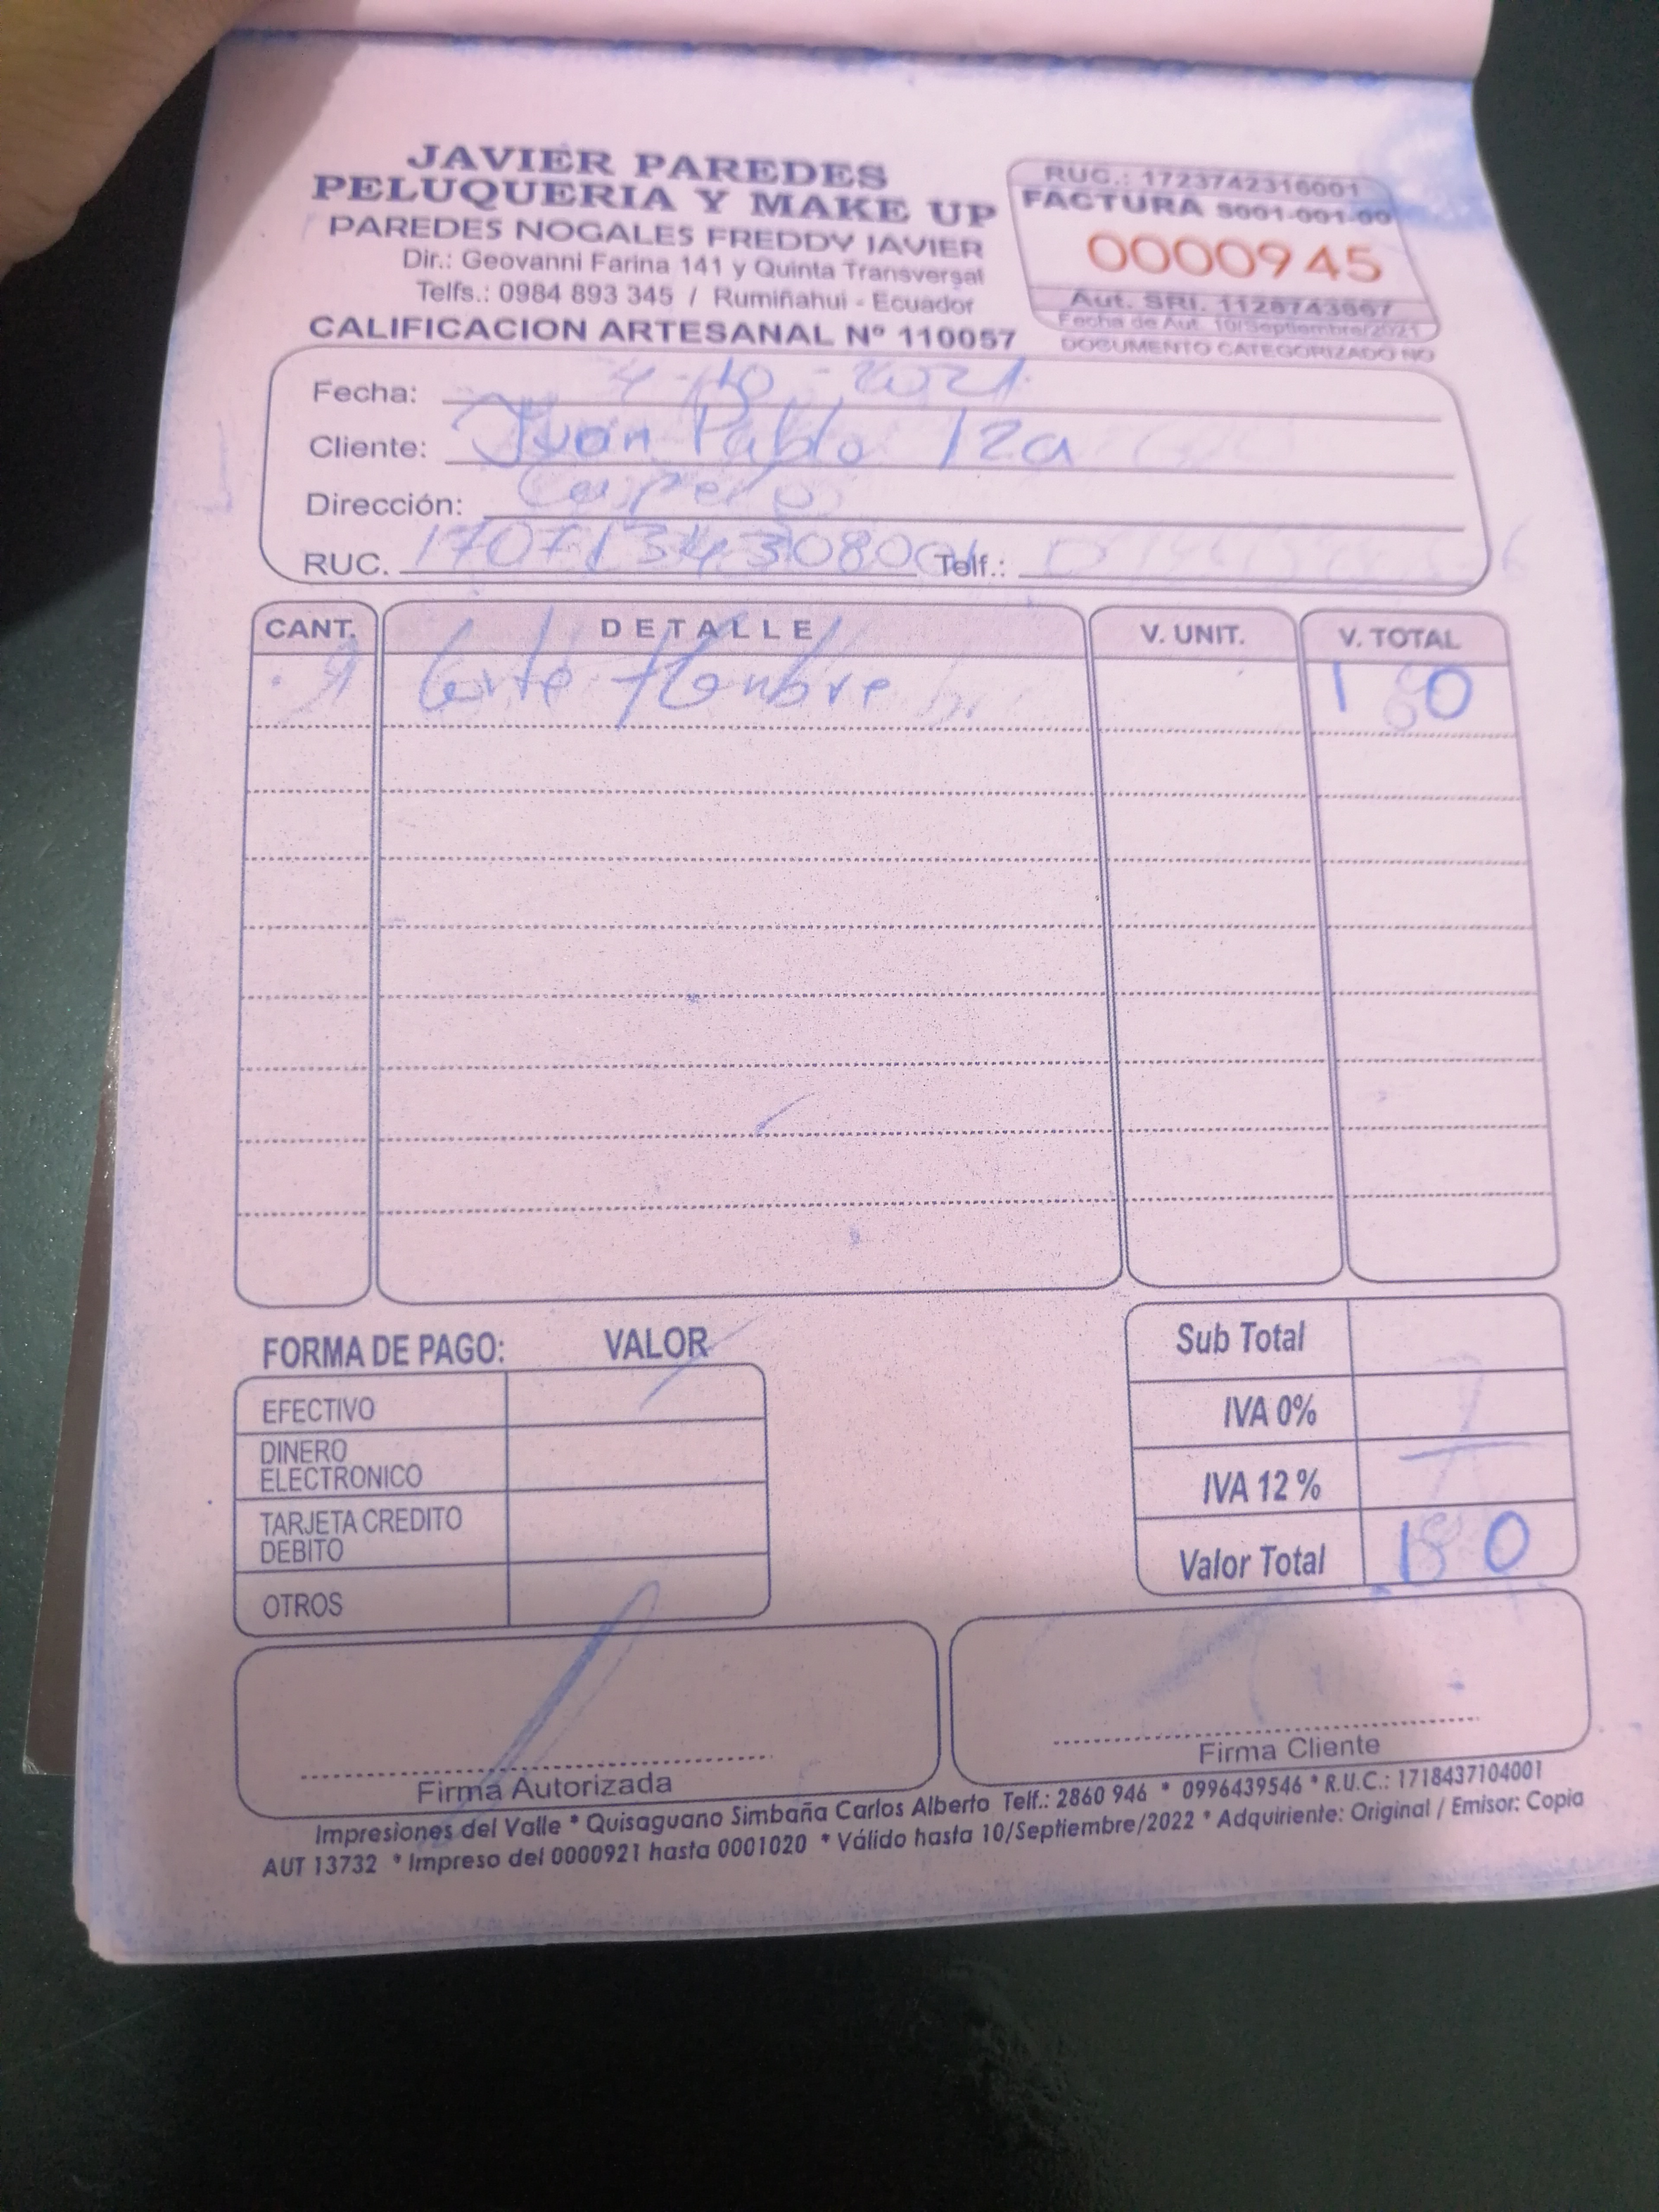 JAVIER PAREDES
PELUQUERIA Y MAKE UP
PAREDES NOGALES FREDDY JAVIER
Dir.: Geovanni Farina 141 y Quinta Transversal
Telfs.: 0984 893 345 / Rumiñahui - Ecuador
CALIFICACION ARTESANAL Nº 110057
RUC.: 1723742316001
FACTURA S001-001-00
0000945
Aut. SRI. 1128743867
Fecha de Aut. 10/Septiembre/2021
DOCUMENTO CATEGORIZADO NO
Fecha: 4-10-2021
Cliente: Juan Pablo Iza
Dirección:
RUC. Telf.:
CANT. DETALLE V. UNIT. V. TOTAL
Corte Hombre
FORMA DE PAGO: VALOR
EFECTIVO
DINERO
ELECTRONICO
TARJETA CREDITO
DEBITO
OTROS
Sub Total
IVA 0%
IVA 12 %
Valor Total
Firma Autorizada
Firma Cliente
Impresiones del Valle * Quisaguano Simbaña Carlos Alberto Telf.: 2860 946 * 0996439546 * R.U.C.: 1718437104001
AUT 13732 * Impreso del 0000921 hasta 0001020 * Válido hasta 10/Septiembre/2022 * Adquiriente: Original / Emisor: Copia